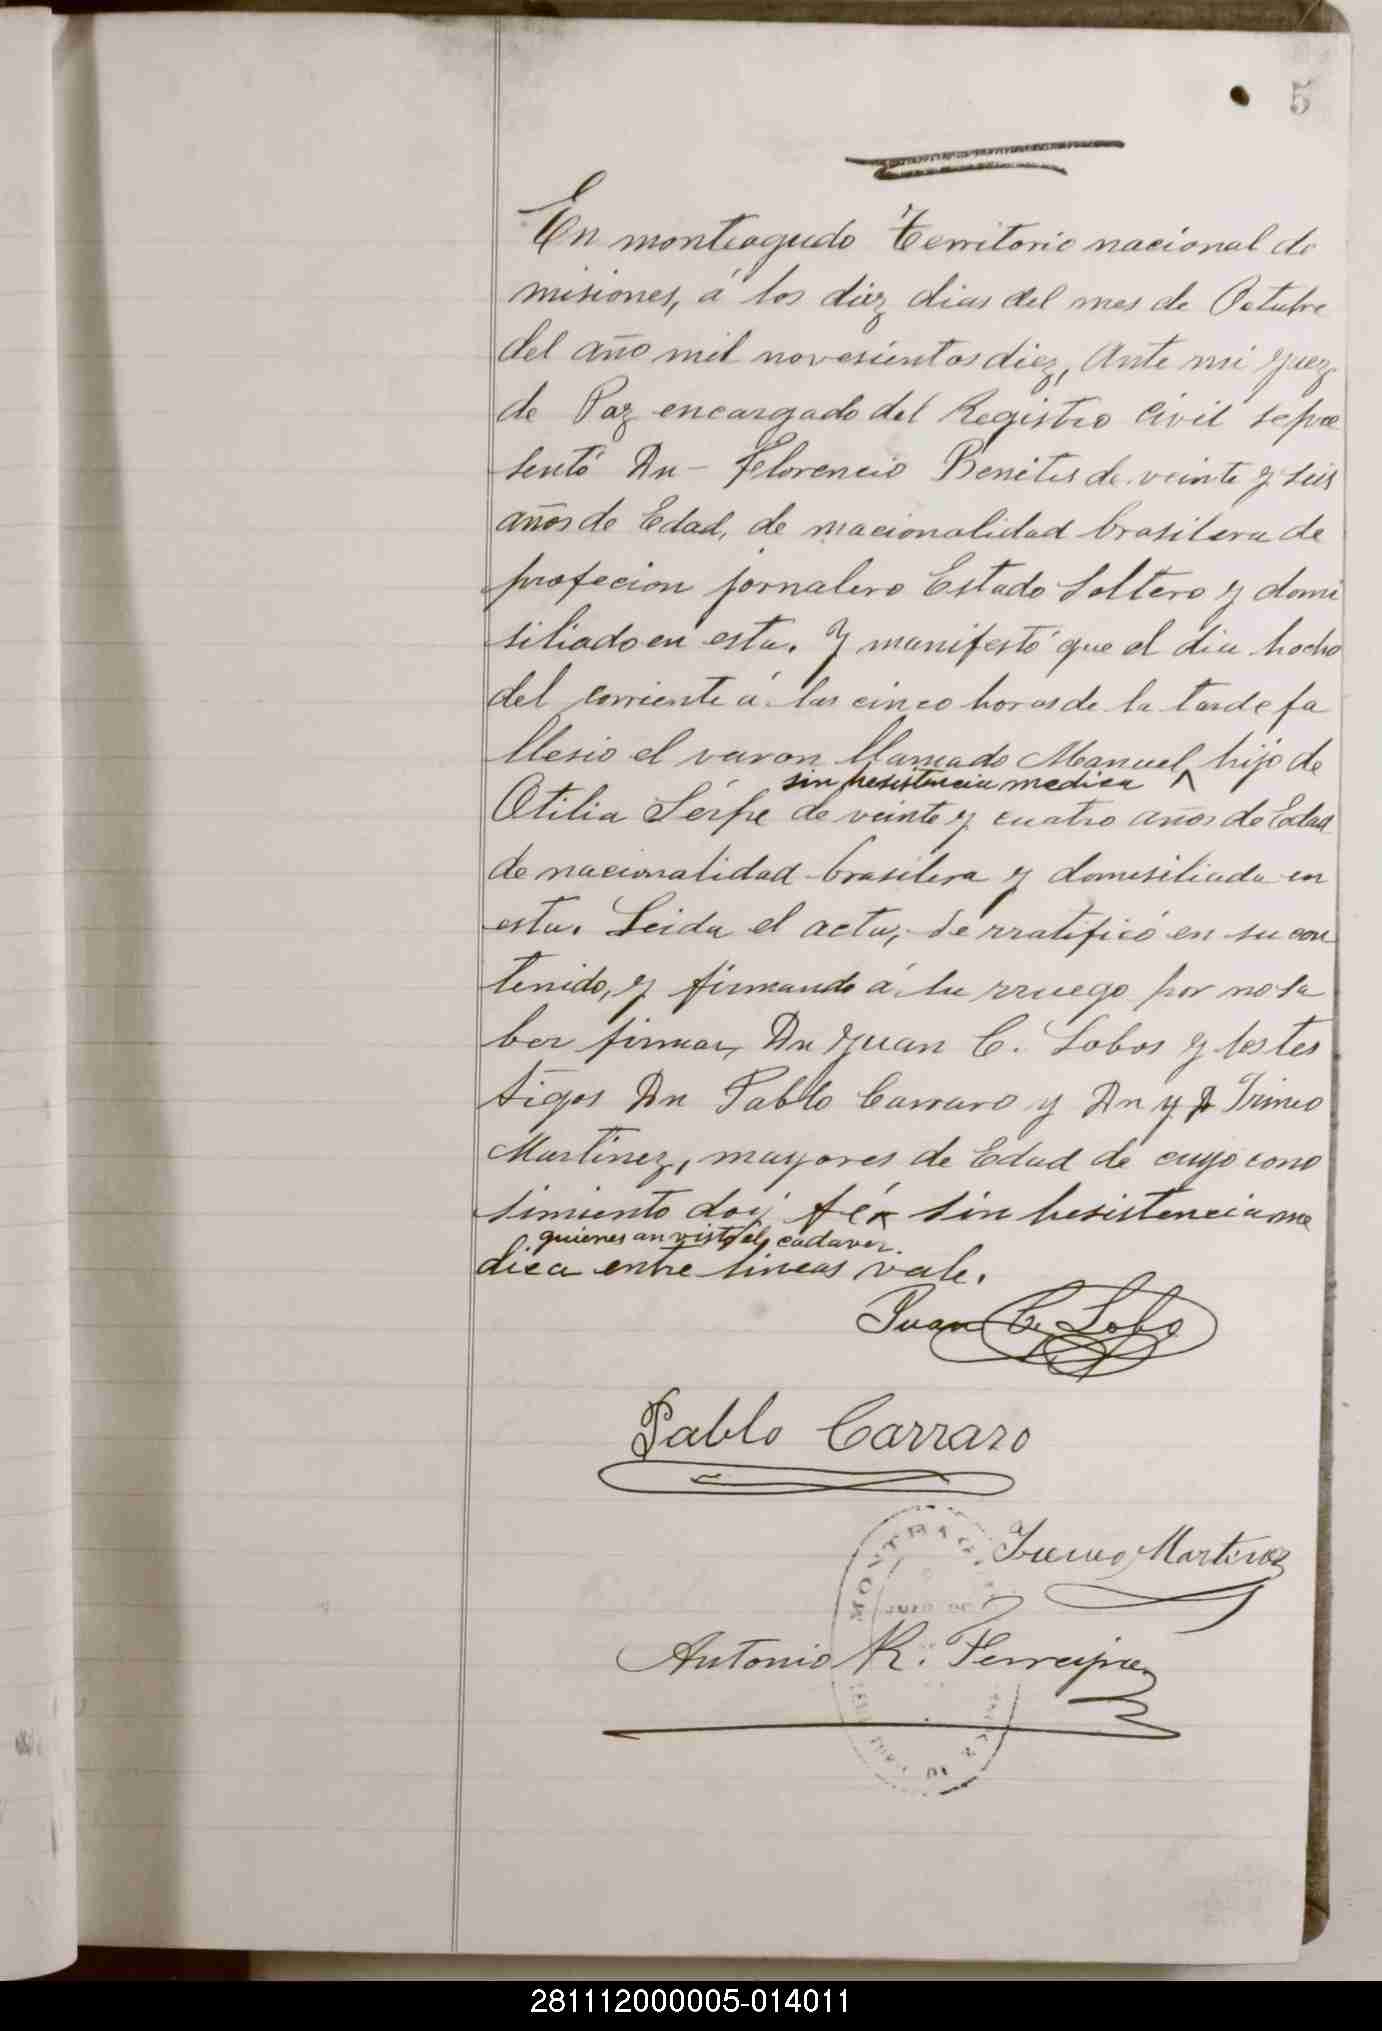 5
En monteagudo Territorio nacional de
misiones, á los diez dias del mes de Octubre
del año mil novesientos diez, Ante mi Juez
de Paz encargado del Registro Civil se pre
sentó Dn - Florencio Benites de veinte y seis
años de Edad, de nacionalidad brasilera de
profecion jornalero Estado Soltero y domi
siliado en esta. Y manifestó que el dia hocho
del corriente á las cinco horas de la tarde fa
llesio el varon llamado Manuel, hijo de
sin hesistencia medica ^
Otilia Serpe de veinte y cuatro años de Edad
de nacionalidad brasilera y domisiliada en
esta. Leida el acta, se rratificó en su con
tenido, y firmando á su rruego por no sa
ber firmar, Dn Juan C. Lobos y los tes
tigos Dn Pablo Carraro y Dn Irineo
Martinez, mayores de Edad de cuyo cono
simiento doy fé, sin hesistencia me
quienes an visto el cadaver.
dica entre lineas vale.
Juan C. Lobo
Pablo Carraro
Irineo Martinez
Antonio R. Ferreyra
281112000005-014011